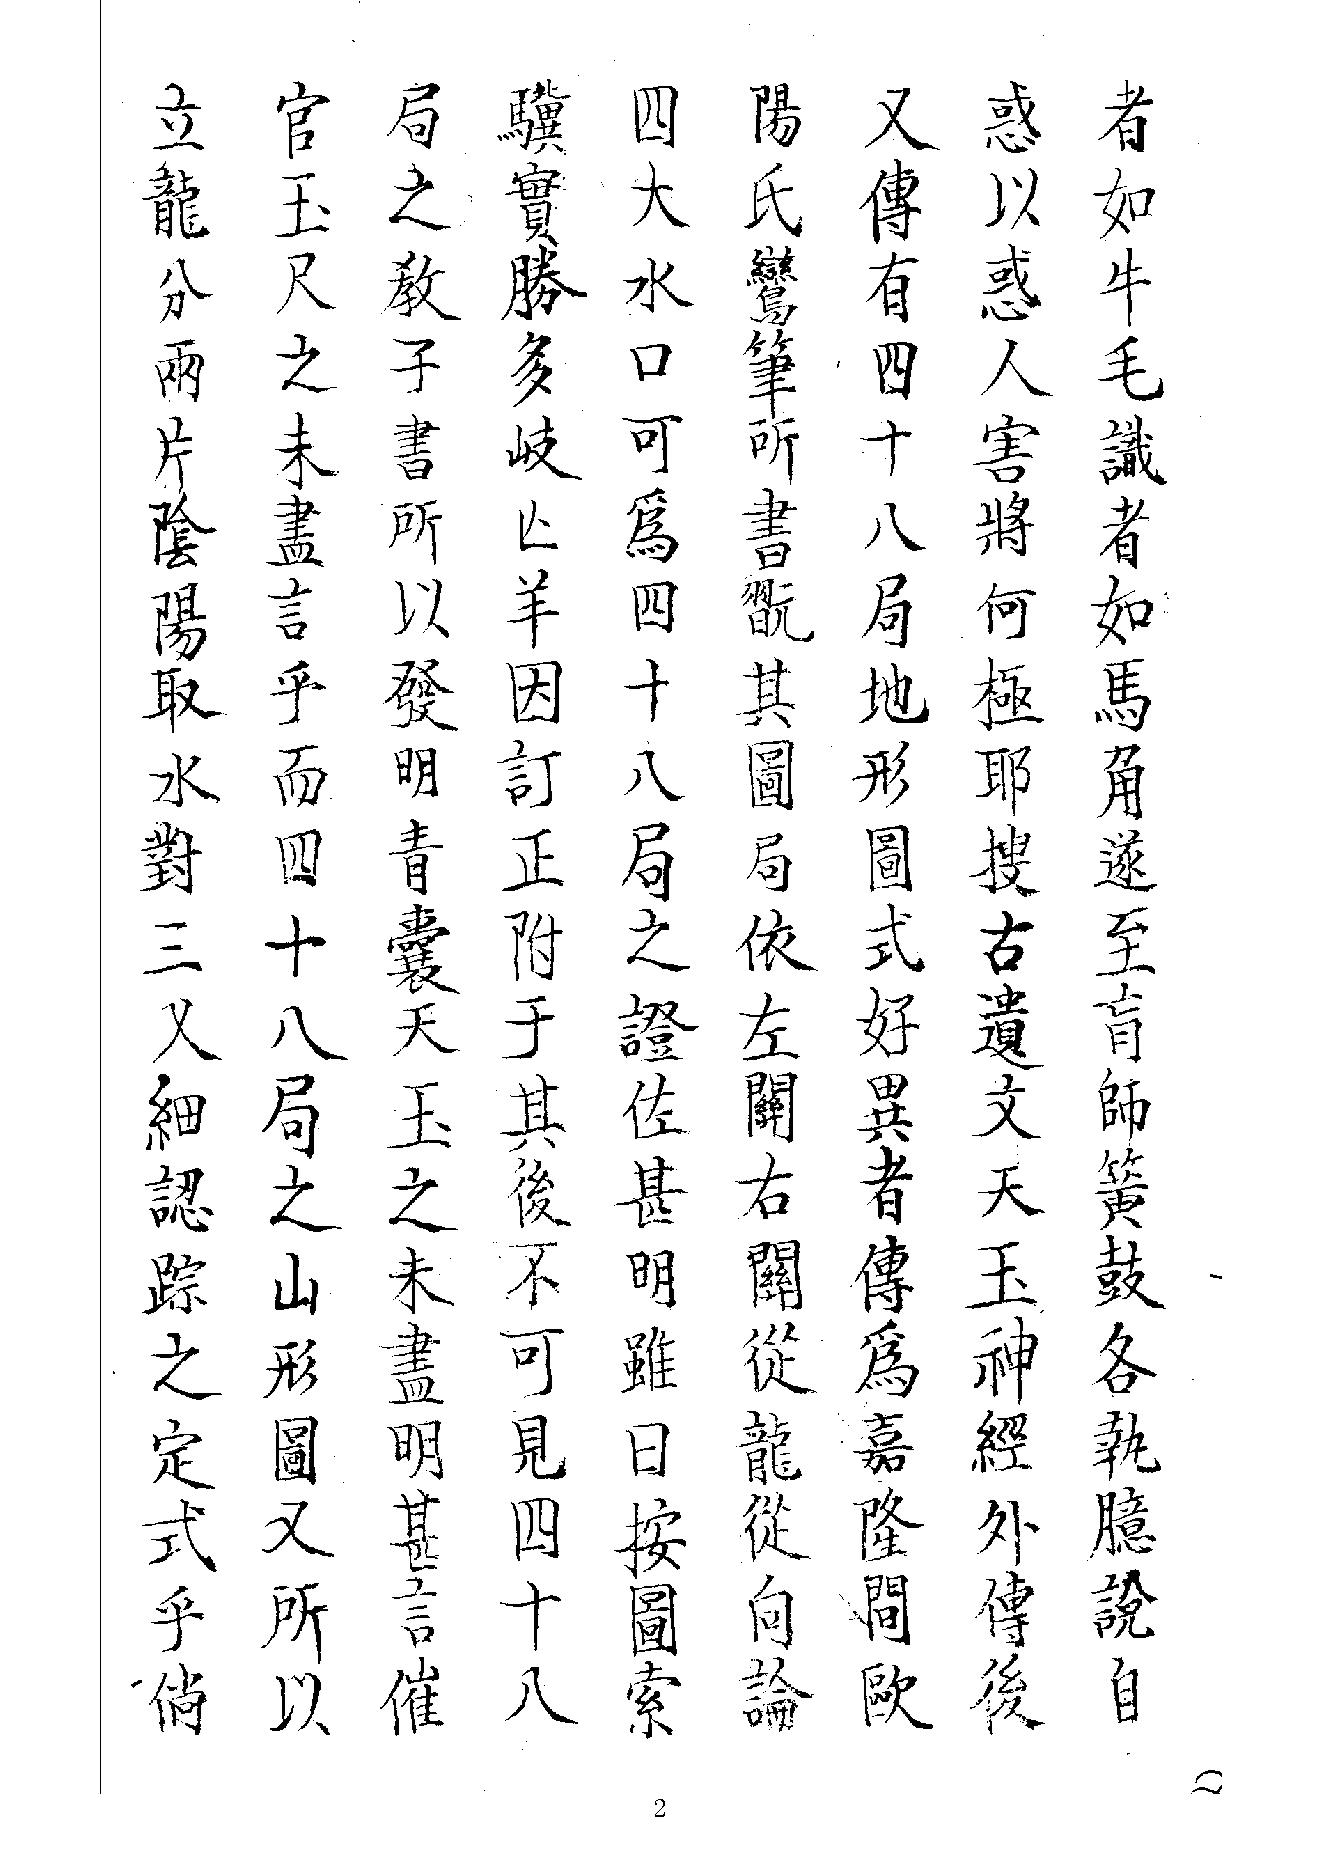 者如牛毛識者如馬角遂至盲師簧鼓各執臆說自
惑以惑人害將何極耶搜古遺文天玉神經外傳後
又傳有四十八局地形圖式好異者傳爲嘉隆間歐
陽氏鸞筆所書翫其圖局依左關右關從龍從向論
四大水口可爲四十八局之證佐甚明雖曰按圖索
驥實勝多岐亾羊因訂正附于其後不可見四十八
局之教子書所以發明青囊天玉之未盡明甚言催
官玉尺之未盡言乎而四十八局之山形圖又所以
立龍分兩片陰陽取水對三叉細認踪之定式乎倘
2